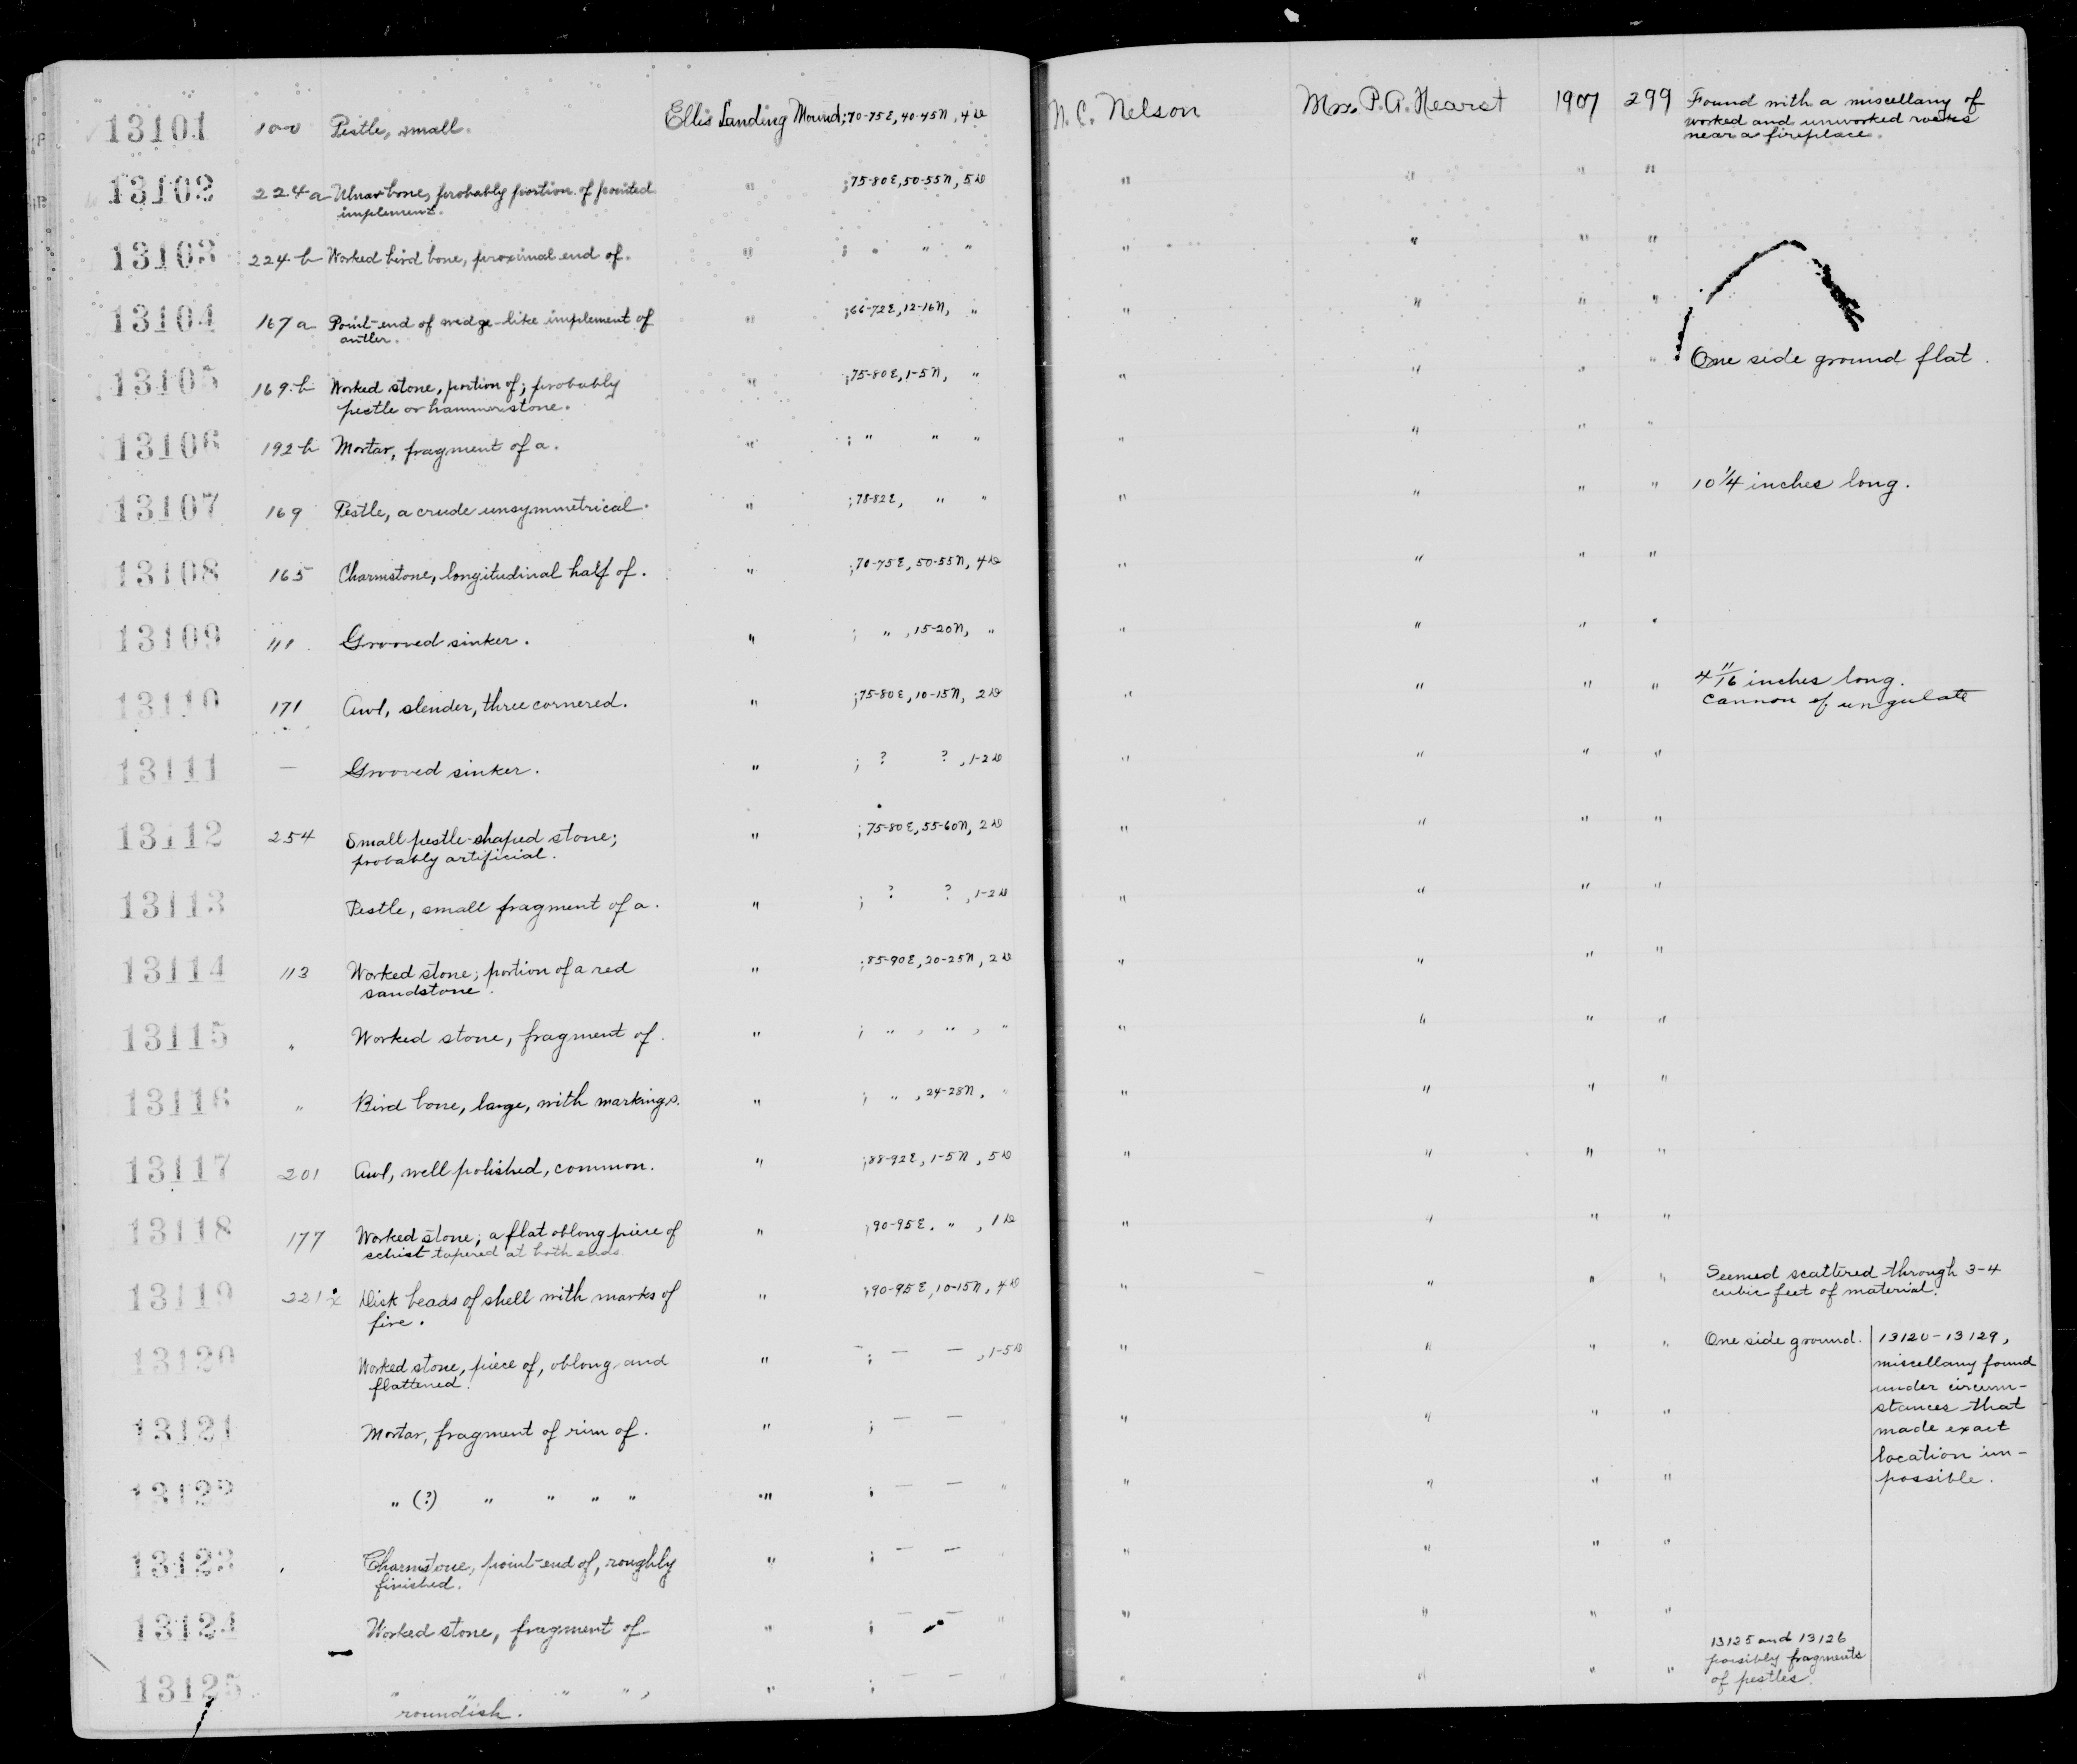 13101 100 Pestle, small. Ellis Landing Mound; 70-75E, 40-45N, 4D N.C. Nelson Mrs. P.A. Hearst 1907 299 Found with a miscellany of
worked and unworked rocks
near a fireplace.
13102 224a Ulnar bone, probably portion of pointed " ; 75-80E, 50-55N, 5D " " " "
implement.
13103 224b Worked bird bone, proximal end of. " ; " " " " " " "
13104 167a Point-end of wedge-like implement of " ; 66-72E, 12-16N, " " " " "
antler.
13105 169b Worked stone, portion of; probably " ; 75-80E, 1-5N, " " " " " One side ground flat.
pestle or hammerstone.
13106 192b Mortar, fragment of a. " ; " " " " " " "
13107 169 Pestle, a crude unsymmetrical. " ; 78-82E, " " " " " " 10 1/4 inches long.
13108 165 Charmstone, longitudinal half of. " ; 70-75E, 50-55N, 4D " " " "
13109 111 Grooved sinker. " ; " , 15-20N, " " " " "
13110 171 Awl, slender, three cornered. " ; 75-80E, 10-15N, 2D " " " " 4 11/16 inches long.
cannon of ungulate
13111 — Grooved sinker. " ; ? ? , 1-2D " " " "
13112 254 Small pestle-shaped stone; " ; 75-80E, 55-60N, 2D " " " "
probably artificial.
13113 Pestle, small fragment of a. " ; ? ? , 1-2D " " " "
13114 113 Worked stone; portion of a red " ; 85-90E, 20-25N, 2D " " " "
sandstone.
13115 " Worked stone, fragment of. " ; " , " , " " " " "
13116 " Bird bone, large, with markings. " ; " , 24-28N, " " " " "
13117 201 Awl, well polished, common. " ; 88-92E, 1-5N, 5D " " " "
13118 177 Worked stone; a flat oblong piece of " ; 90-95E, " , 1D " " " "
schist tapered at both ends.
13119 221 Disk beads of shell with marks of " ; 90-95E, 10-15N, 4D " " " " Seemed scattered through 3-4
fire. cubic feet of material.
13120 Worked stone, piece of, oblong and " ; — — , 1-5D " " " " One side ground. 13120-13129,
flattened. miscellany found
under circum-
stances that
13121 Mortar, fragment of rim of. " ; — — " " " " made exact
location im-
possible.
13122 " (?) " " " " " ; — — " " " " "
13123 Charmstone, point-end of, roughly " ; — — " " " "
finished.
13124 Worked stone, fragment of " ; — — " " " " "
13125 " " " " , " ; — — " " " " " 13125 and 13126
roundish. possibly fragments
of pestles.